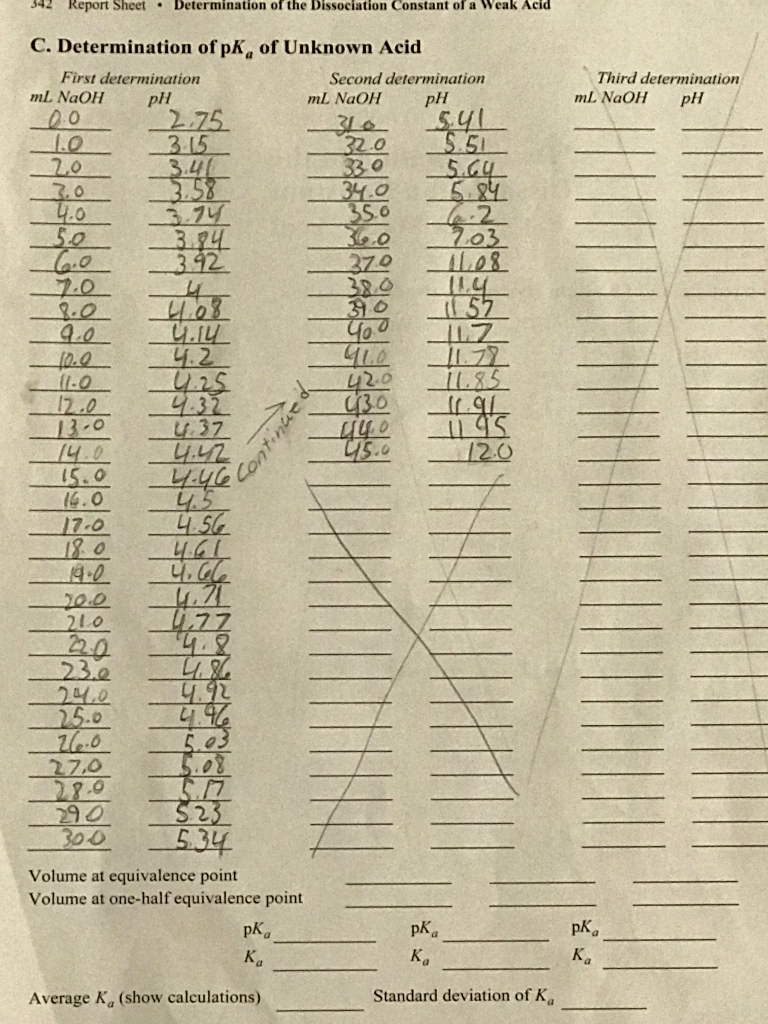 342 Report Sheet • Determination of the Dissociation Constant of a Weak Acid
C. Determination of pKa of Unknown Acid
First determination Second determination Third determination
mL NaOH pH mL NaOH pH mL NaOH pH
0.0 2.75 31.0 5.41
1.0 3.15 32.0 5.51
2.0 3.41 33.0 5.64
3.0 3.58 34.0 5.84
4.0 3.74 35.0 6.2
5.0 3.84 36.0 7.03
6.0 3.92 37.0 11.08
7.0 4 38.0 11.4
8.0 4.08 39.0 11.57
9.0 4.14 40.0 11.7
10.0 4.2 41.0 11.78
11.0 4.25 42.0 11.85
12.0 4.32 43.0 11.91
13.0 4.37 44.0 11.95
14.0 4.42 45.0 12.0
15.0 4.46 continued
16.0 4.5
17.0 4.56
18.0 4.61
19.0 4.66
20.0 4.71
21.0 4.77
22.0 4.8
23.0 4.86
24.0 4.92
25.0 4.96
26.0 5.03
27.0 5.08
28.0 5.17
29.0 5.23
30.0 5.34
Volume at equivalence point
Volume at one-half equivalence point
pKa pKa pKa
Ka Ka Ka
Average Ka (show calculations) Standard deviation of Ka